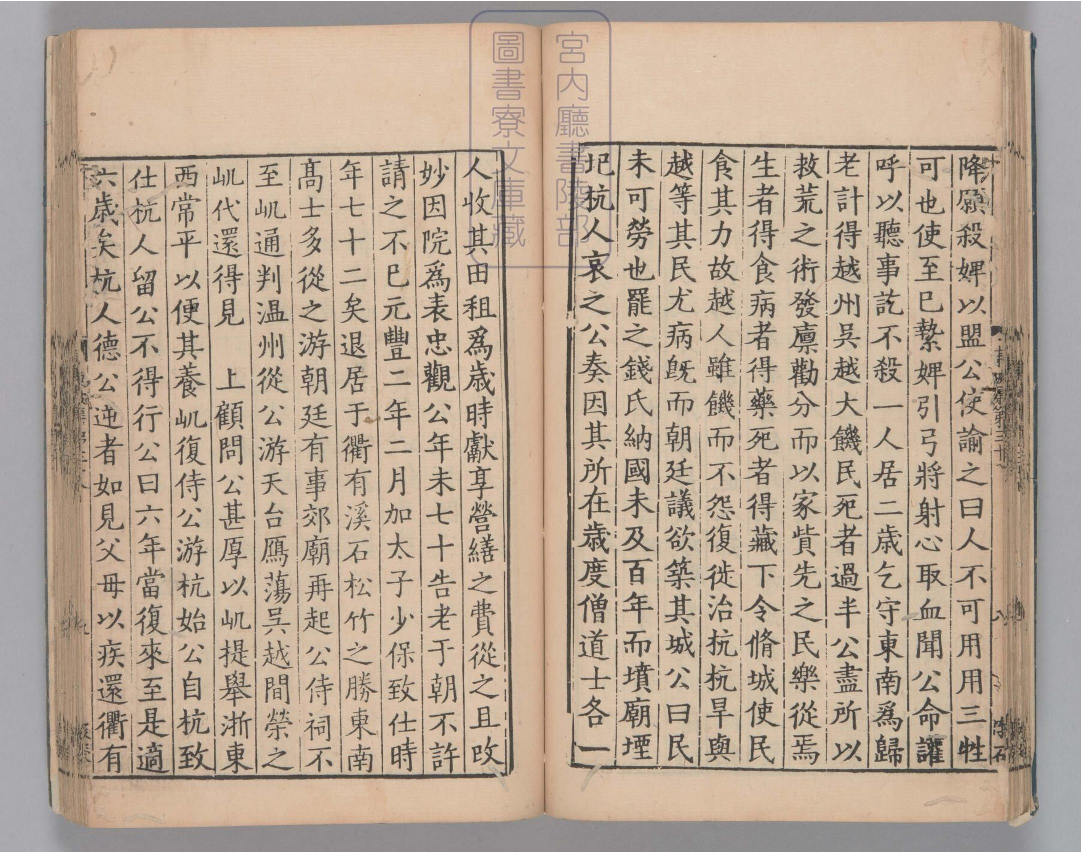 降願殺婢以盟公使諭之曰人不可用用三牲
可也使至已縶婢引弓將射心取血聞公命讙
呼以聽事訖不殺一人居二歲乞守東南爲歸
老計得越州吳越大饑民死者過半公盡所以
救荒之術發廩勸分而以家貲先之民樂從焉
生者得食病者得藥死者得藏下令脩城使民
食其力故越人雖饑而不怨復徙治杭杭旱與
越等其民尤病旣而朝廷議欲築其城公曰民
未可勞也罷之錢氏納國未及百年而墳廟堙
圮杭人哀之公奏因其所在歲度僧道士各一
人收其田租爲歲時獻享營繕之費從之且改
妙因院爲表忠觀公年未七十告老于朝不許
請之不已元豐二年二月加太子少保致仕時
年七十二矣退居于衢有溪石松竹之勝東南
髙士多從之游朝廷有事郊廟再起公侍祠不
至屼通判温州從公游天台鴈蕩吳越間榮之
屼代還得見 上顧問公甚厚以屼提舉浙東
西常平以便其養屼復侍公游杭始公自杭致
仕杭人留公不得行公曰六年當復來至是適
六歲矣杭人德公逆者如見父母以疾還衢有
宮内廳書陵部
圖書寮文庫藏